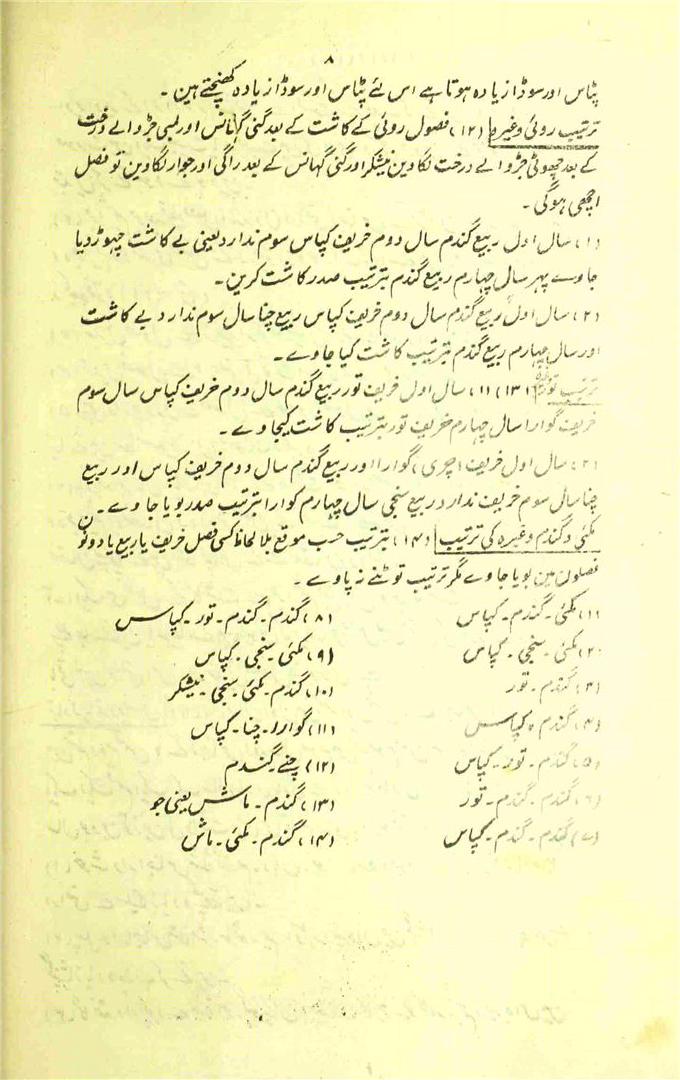 ۸
پٹاس اور سوڈا زیادہ ہوتا ہے اس لئے پٹاس اور سوڈا زیادہ کھنچتے ہین ۔
ترتیب روئی وغیرہ (۱۲) فصول روئی کے کاشت کے بعد گنی گہانس اور لمبی جڑ والے درخت
کے بعد چھوٹی جڑ والے درخت لگا وین نیشکر اور گنی گہانس کے بعد راگی اور جوار لگا وین تو فصل
اچھی ہوگی ۔
(۱) سال اول ربیع گندم سال دوم خریف کپاس سوم ندارد یعنی بے کاشت چہوڑ دیا
جاوے پہر سال چہارم ربیع گندم بترتیب صدر کاشت کرین ۔
(۲) سال اول ربیع گندم سال دوم خریف کپاس ربیع چنا سال سوم ندارد بے کاشت
اور سال چہارم ربیع گندم بترتیب کاشت کیا جاوے ۔
ترتیب تور (۱۳) (۱) سال اول خریف تور ربیع گندم سال دوم خریف کپاس سال سوم
خریف گوارا سال چہارم خریف تور بترتیب کاشت کیجاوے ۔
(۲) سال اول خریف (چری) گوارا اور ربیع گندم سال دوم خریف کپاس اور ربیع
چنا سال سوم خریف ندارد ربیع سنجی سال چہارم گوارا بترتیب صدر بویا جاوے ۔
مکئی و گندم وغیرہ کی ترتیب (۱۴) بترتیب حسب موقع بلا لحاظ کسی فصل خریف یا ربیع یا دونون
فصلون مین بویا جاوے مگر ترتیب ٹوٹنے نہ پاوے ۔
(۱) مکئی ۔ گندم ۔ کپاس (۸) گندم ۔ گندم ۔ تور ۔ کپاس
(۲) مکئی ۔ سنجی ۔ کپاس (۹) مکئی ۔ سنجی ۔ کپاس
(۳) گندم ۔ تور (۱۰) گندم ۔ مکئی ۔ سنجی ۔ نیشکر
(۴) گندم ۔ کپاس (۱۱) گوارا ۔ چنا ۔ کپاس
(۵) گندم ۔ تور ۔ کپاس (۱۲) چنے ۔ گندم
(۶) گندم ۔ گندم ۔ تور (۱۳) گندم ۔ ماش یعنی جو
(۷) گندم ۔ گندم ۔ کپاس (۱۴) گندم ۔ مکئی ۔ ماش